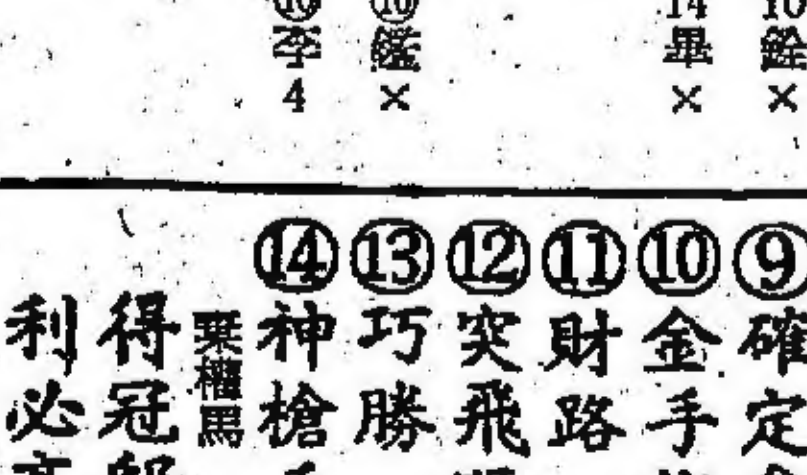 10
14
×
×
10
×
10
李
4
⑨確定
⑩金手
⑪財路
⑫突飛
⑬巧勝
⑭神槍
棄權馬
得冠
利必